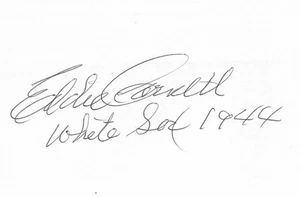 Eddie Carnett
White Sox 1944